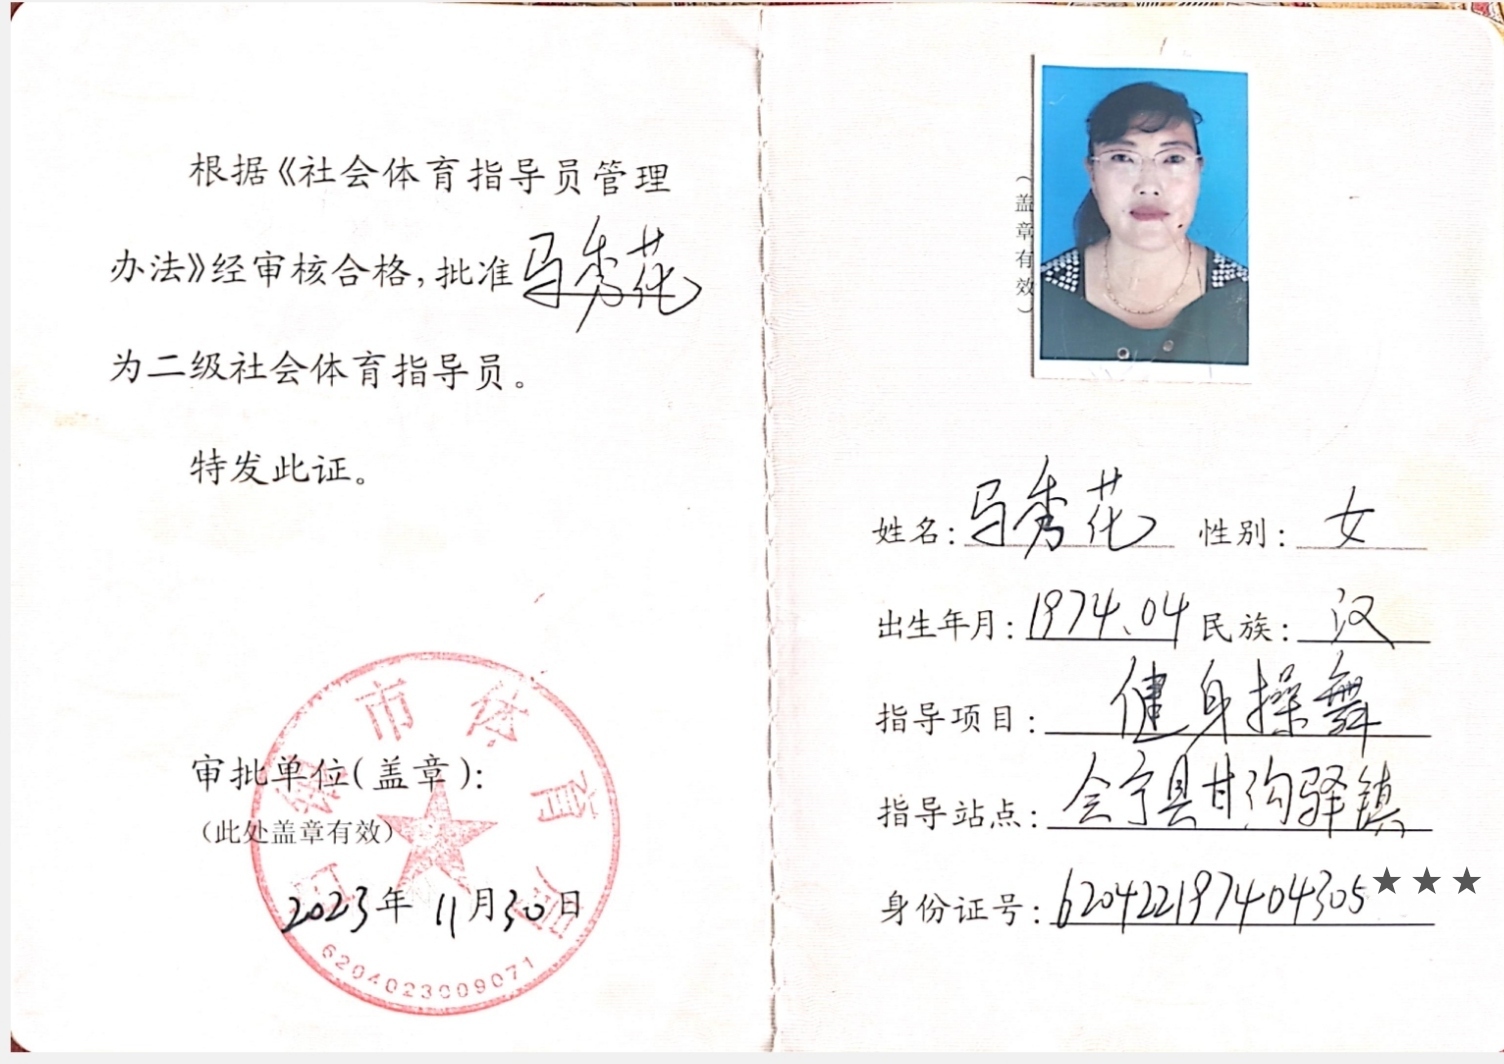 根据《社会体育指导员管理
办法》经审核合格，批准马秀花
为二级社会体育指导员。
特发此证。
审批单位(盖章):
(此处盖章有效)
2023年 11月30日
白银市体育局
6204023009071
(盖章有效)
姓名:马秀花 性别:女
出生年月:1974.04 民族:汉
指导项目:健身操舞
指导站点:会宁县甘沟驿镇
身份证号:620422197404305★★★